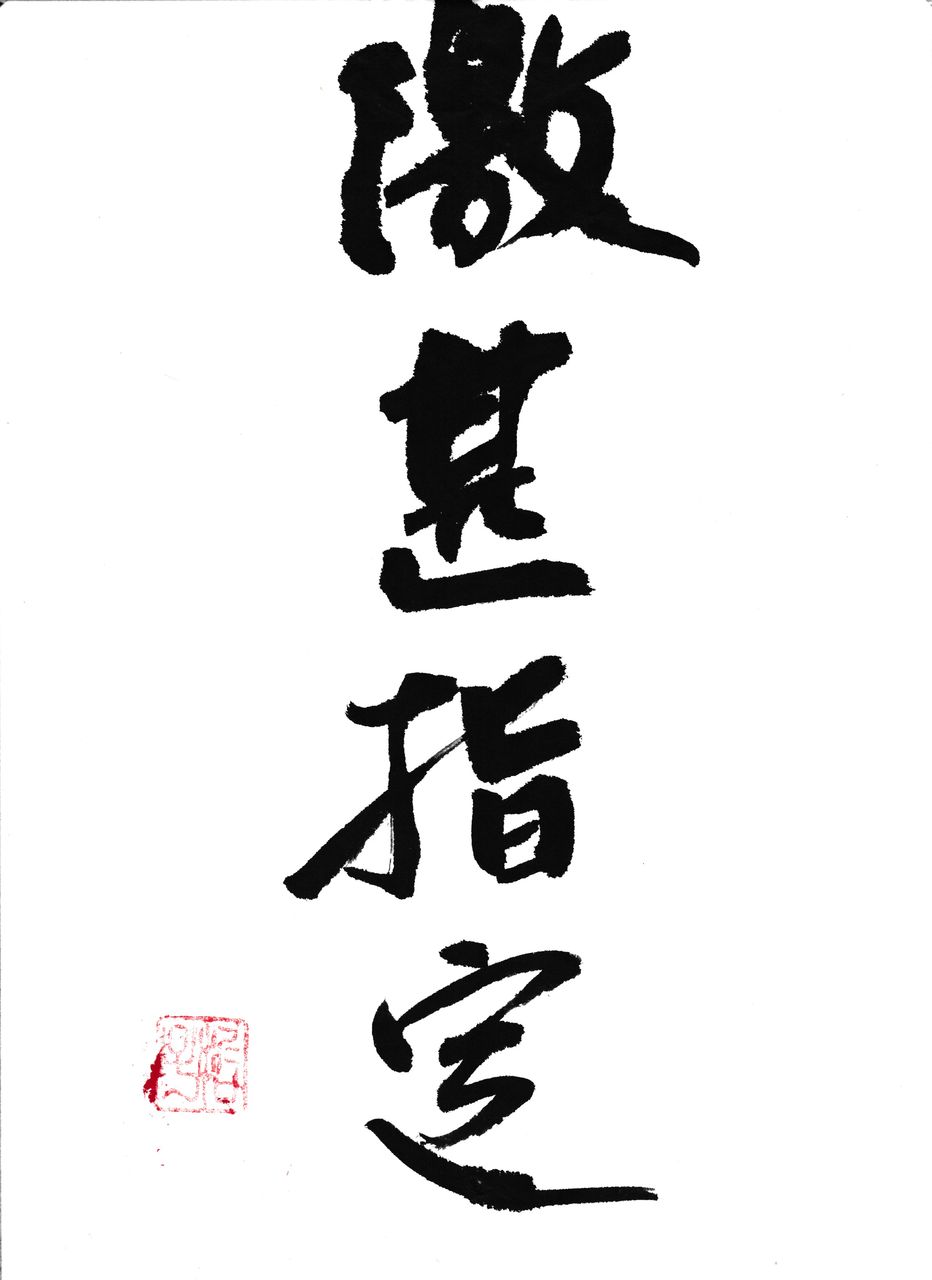 激甚指定